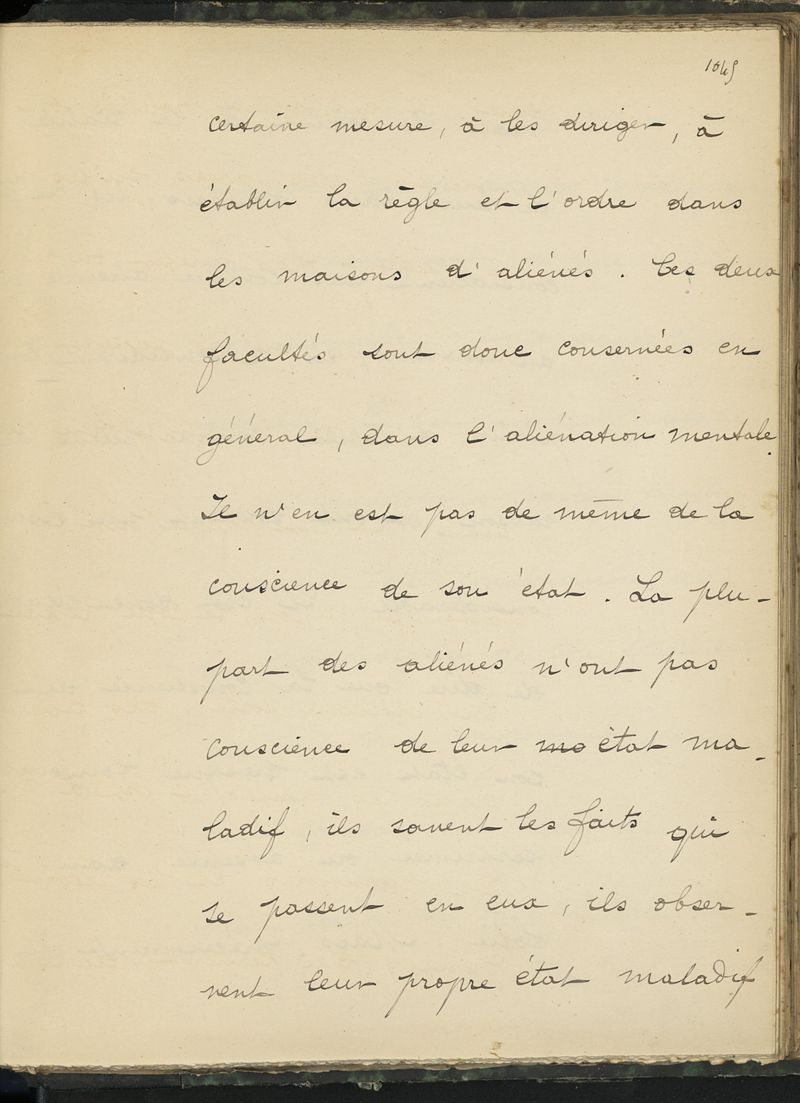 1045
certaine mesure, à les diriger, à
établir la règle et l'ordre dans
les maisons d'aliénés. Ces deux
facultés sont donc conservées en
général, dans l'aliénation mentale.
Il n'en est pas de même de la
conscience de son état. La plu-
part des aliénés n'ont pas
conscience de leur ma état ma-
ladif, ils savent les faits qui
se passent en eux, ils obser-
vent leur propre état maladif